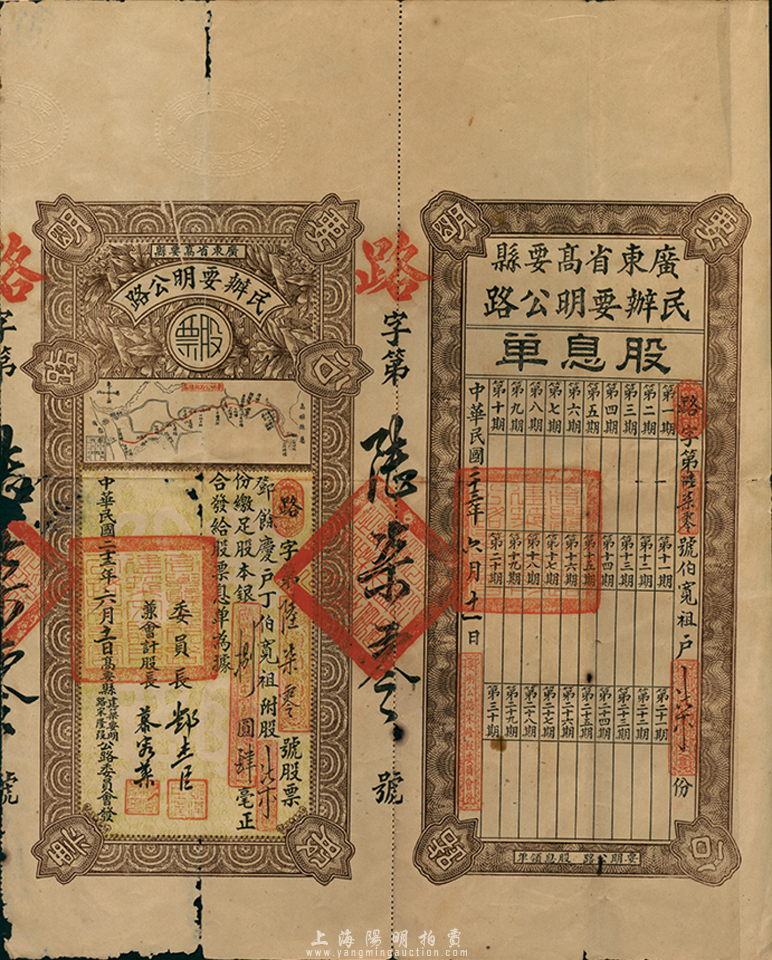 廣東省高要縣
民辦要明公路
股票
路字第陸柒零號股票
鄧餘慶戶丁伯寬祖附股
份繳足股本銀捌圓肆毫正
合發給股票息單為據
委員長
兼會計股長
中華民國二十三年六月十一日高要縣建築要明公路宋崖段公路委員會發
路字第陸柒零號
廣東省高要縣
民辦要明公路
股息單
路字第陸柒零號伯寬祖戶
份
第一期
第二期
第三期
第四期
第五期
第六期
第七期
第八期
第九期
第十期
第十一期
第十二期
第十三期
第十四期
第十五期
第十六期
第十七期
第十八期
第十九期
第二十期
第二十一期
第二十二期
第二十三期
第二十四期
第二十五期
第二十六期
第二十七期
第二十八期
第二十九期
第三十期
中華民國二十三年六月十一日
要明公路 股息領單
上海陽明拍賣
www.yangmingauction.com